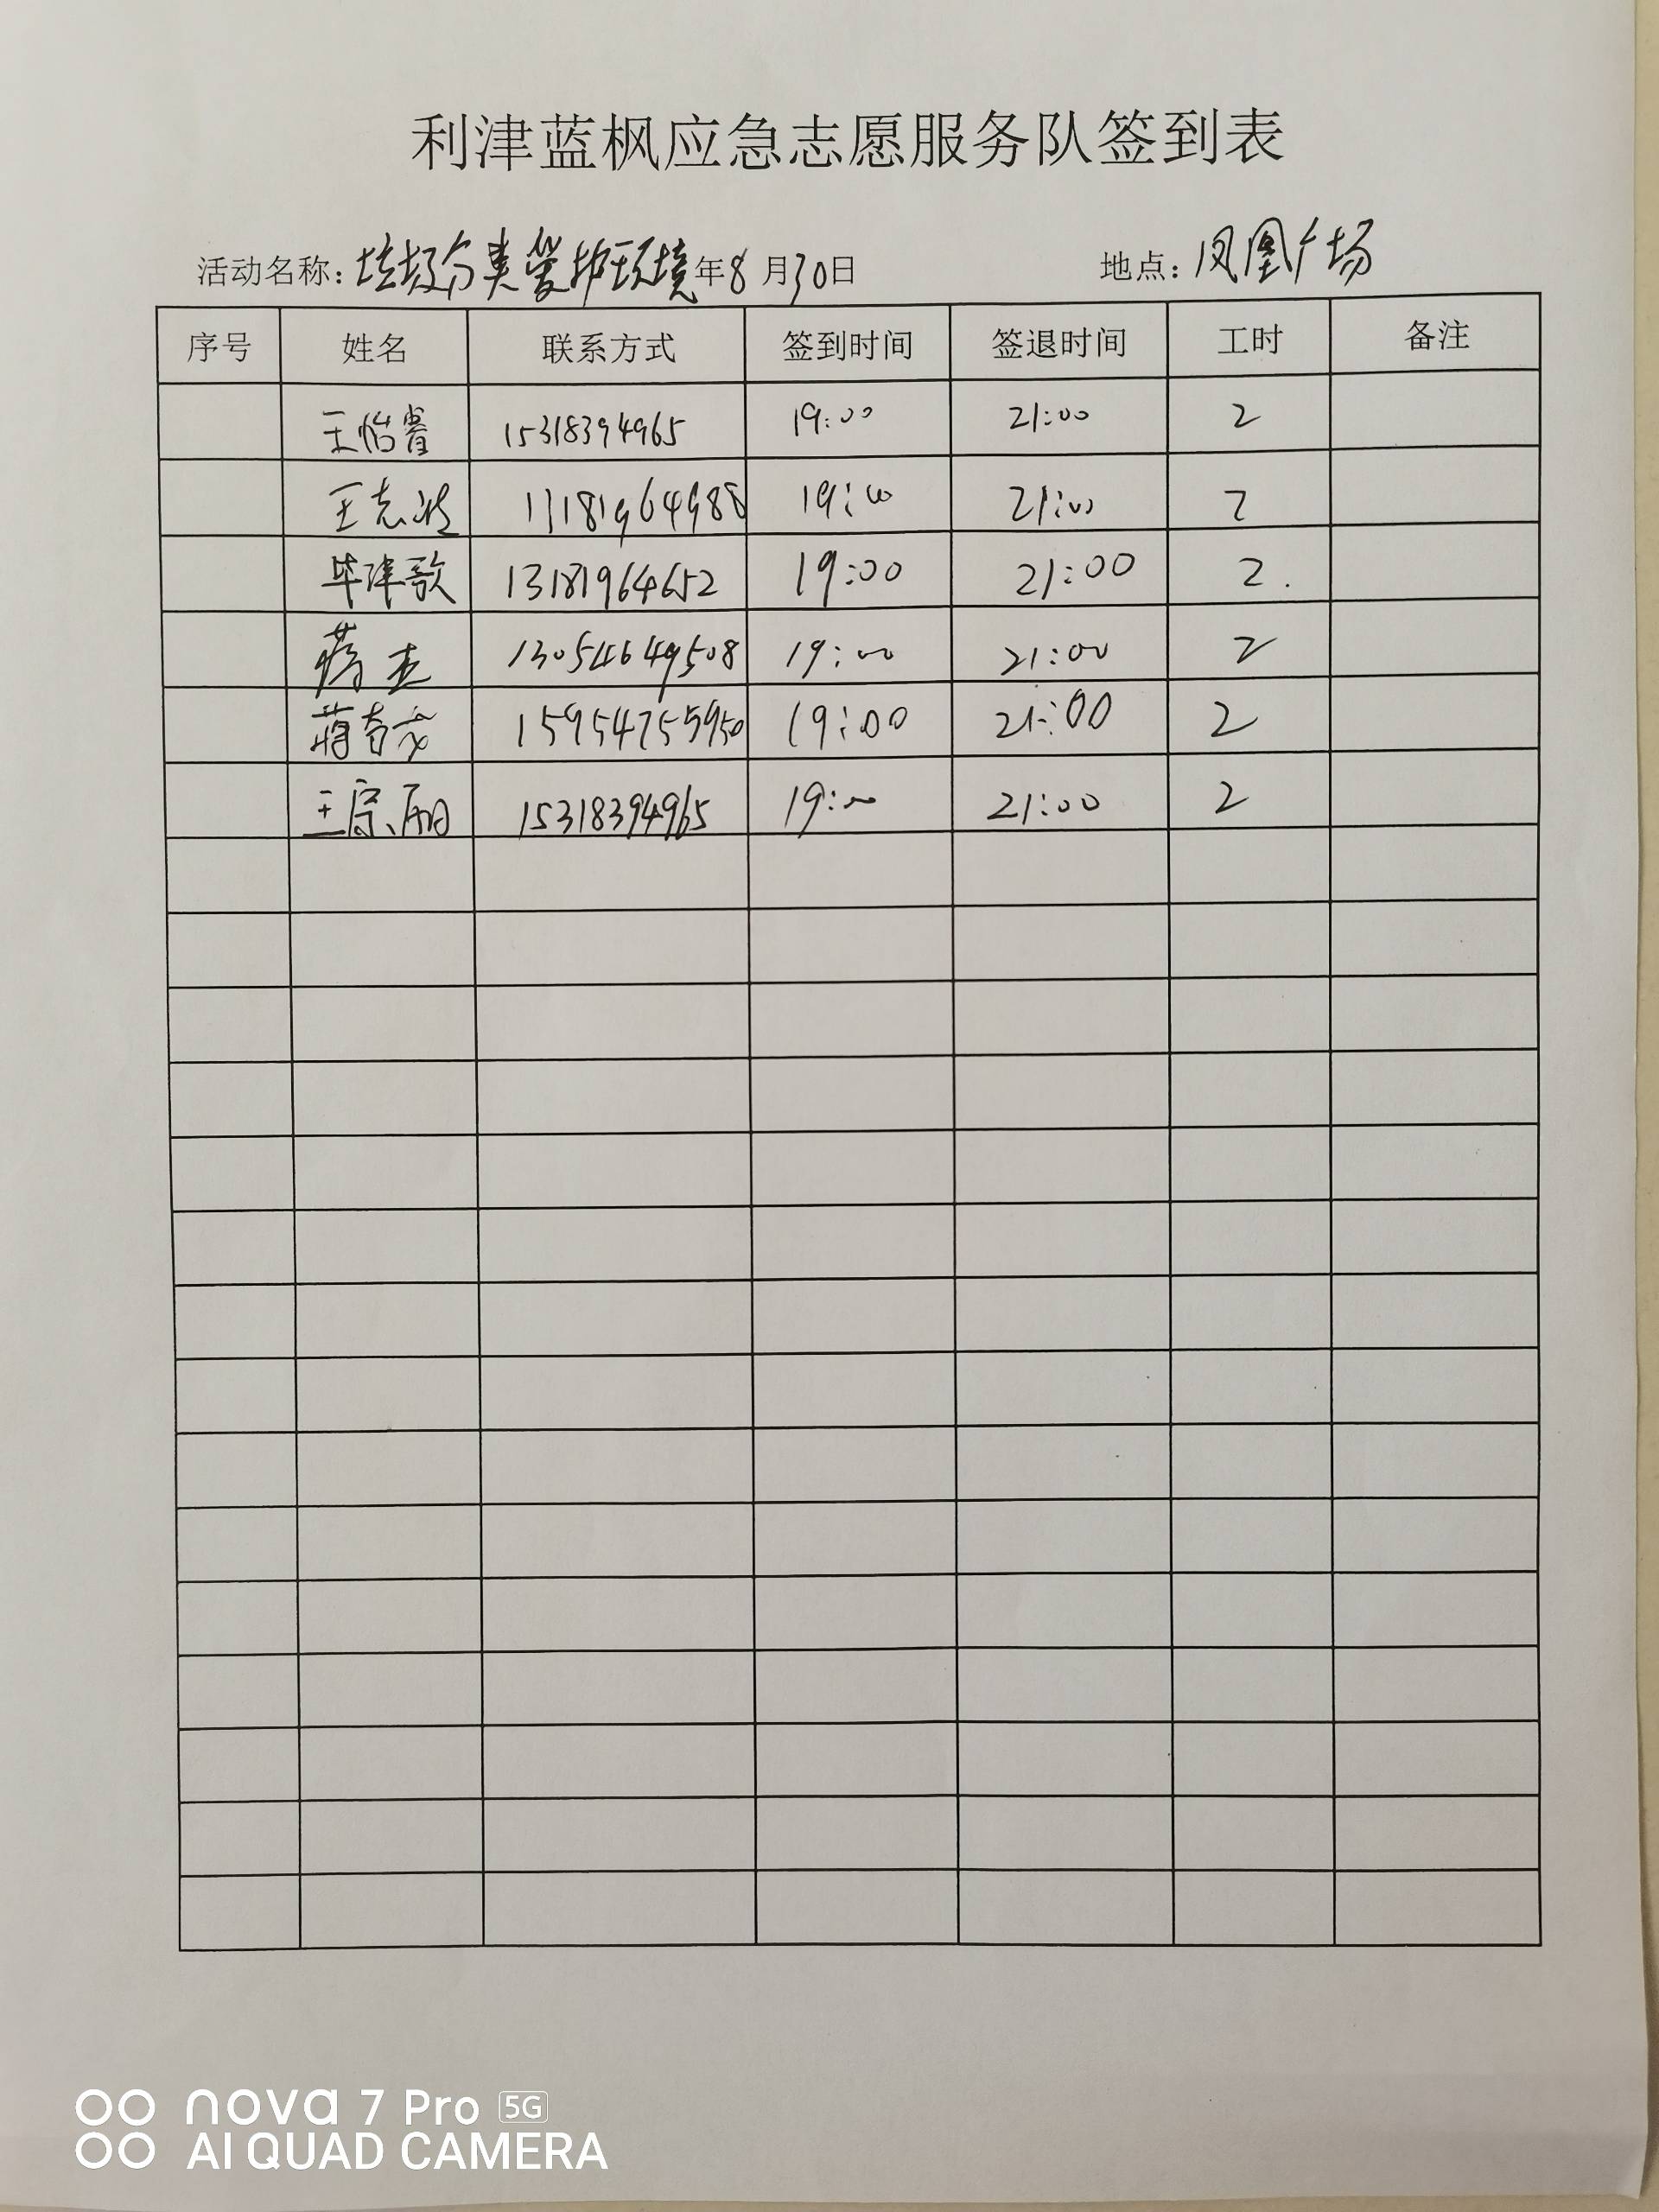 利津蓝枫应急志愿服务队签到表
活动名称：垃圾分类爱护环境年8月30日 地点：凤凰广场
序号 姓名 联系方式 签到时间 签退时间 工时 备注
王怡睿 15318394965 19:00 21:00 2
王志波 19:00 21:00 2
毕津歌 13181964652 19:00 21:00 2.
蒋杰 13054649508 19:00 21:00 2
蒋 15954755950 19:00 21:00 2
王 15318394965 19:00 21:00 2
nova 7 Pro 5G
AI QUAD CAMERA